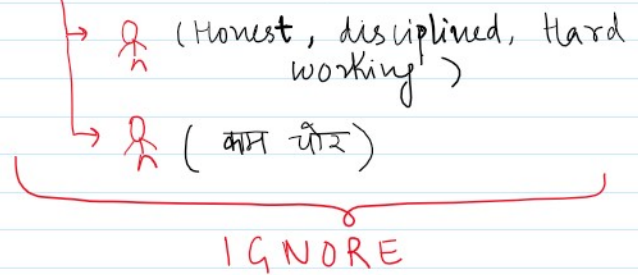 (Honest, disciplined, Hard
working)
(काम चोर)
IGNORE